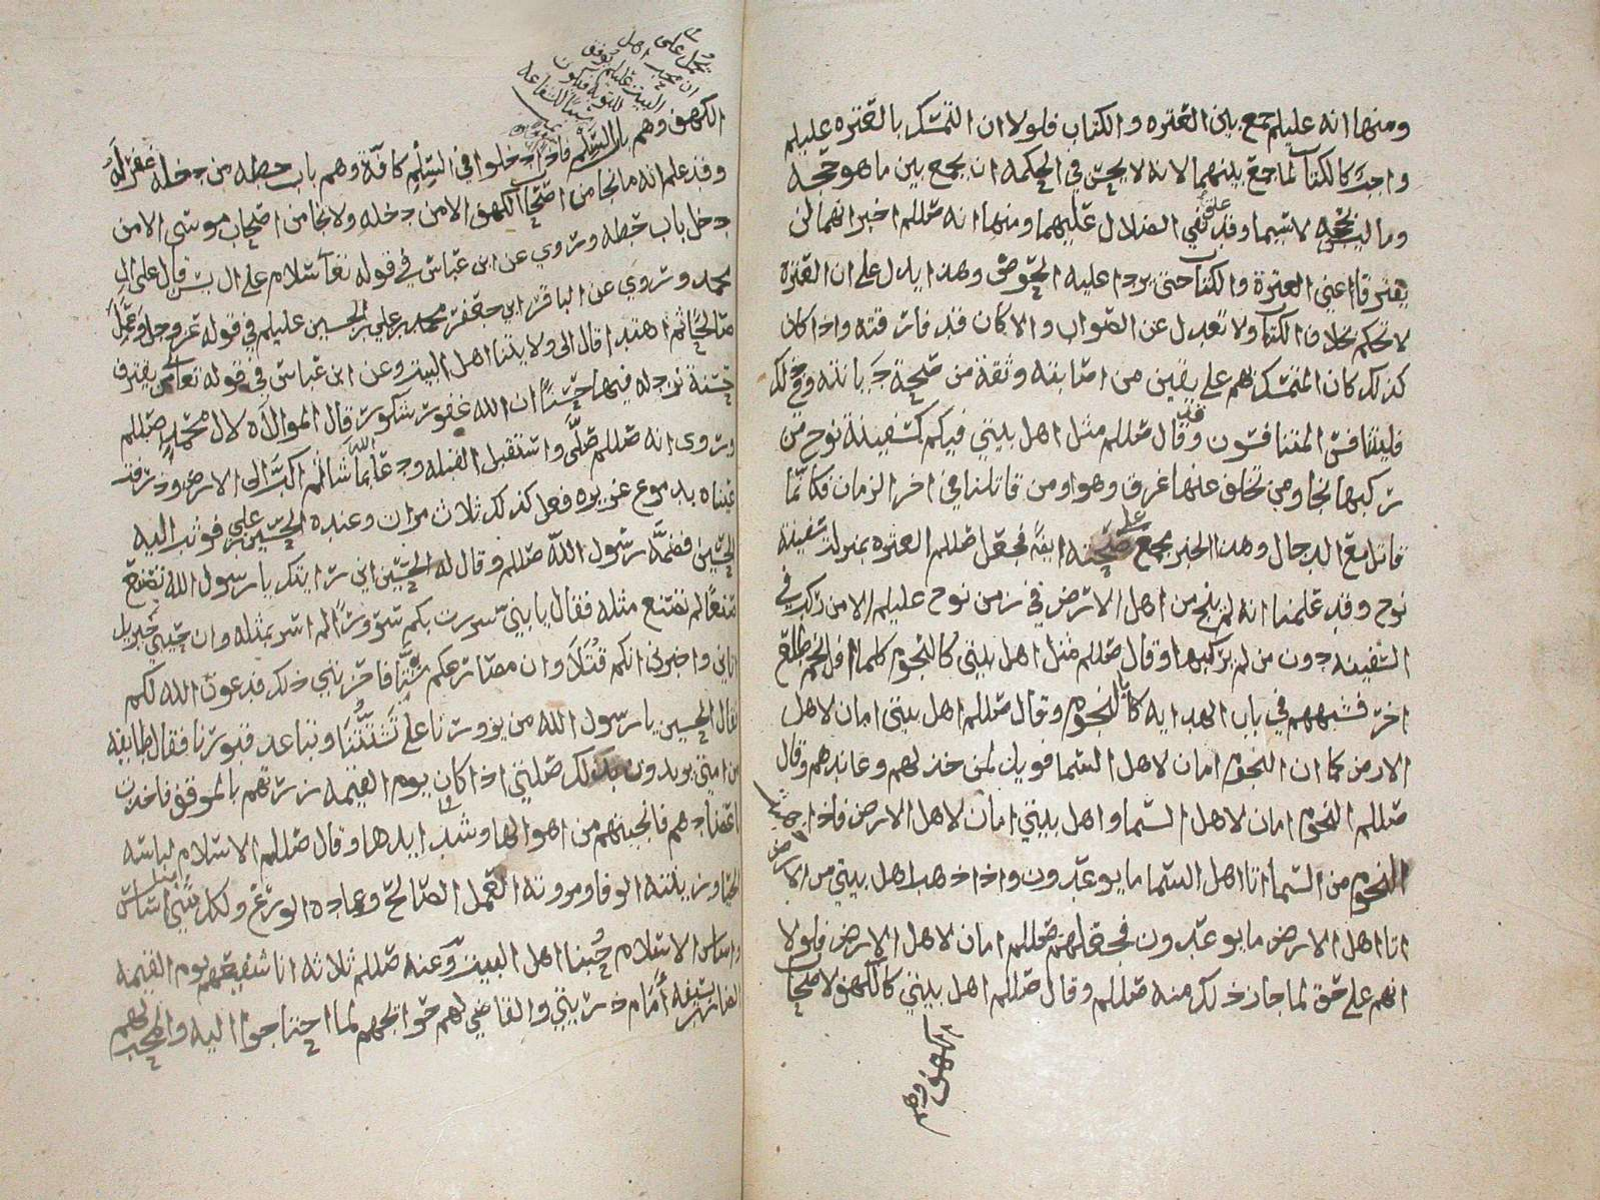 ومنها انه عليلم جمع بين العتره والكتاب فلولا ان التمسك بالعتره عليلم
واجب كالكتاب لما جمع بينهما لانه لا يحسن في الحكمه ان يجمع بين ما هو حجه
وما ليس بحجه لا سيما وقد علق نفي الضلال عليهما ومنها انه صللم اخبر انهما لن
يفترقا اعني العترة والكتاب حتى يردا عليه الحوض وهذا يدل على ان العتره
لا تحكم بخلاف الكتاب ولا تعدل عن الصواب والا كان قد فارقته واذا كان
كذلك كان المتمسك بهم على يقين من اصابته وثقة من صحة ديانته وفي ذلك
فليتنافس المتنافسون وقد قال صللم مثل اهل بيتي فيكم كسفينة نوح من
ركبها نجا ومن تخلف عنها غرق وهوا ومن قاتلنا في اخر الزمان فكانما
قاتل مع الدجال وهذا الخبر مجمع على صحته ايضا فجعل صللم العتره بمنزلة سفينة
نوح وقد علمنا انه لم ينج من اهل الارض في زمن نوح عليلم الا من ركب في
السفينه دون من لم يركبها وقال صللم مثل اهل بيتي كالنجوم كلما افل نجم طلع
اخر فشبههم في باب الهدايه بالنجوم وقال صللم اهل بيتي امان لاهل
الارض كما ان النجوم امان لاهل السما فويل لمن خذلهم وعاندهم وقال
صللم النجوم امان لاهل السما واهل بيتي امان لاهل الارض فاذا ذهبت
النجوم من السما اتا اهل السما ما يوعدون واذا ذهب اهل بيتي من الارض
اتا اهل الارض ما يوعدون فجعلهم صللم امان لاهل الارض فلولا
انهم على حق لما جاز ذلك منه صللم وقال صللم اهل بيتي كالكهف لاصحاب
الكهف وهم
يحمل على
ان محب اهل
البيت عليلم يوفق
للتوبه فيكون
سببا للشفاعه
الكهف وهم باب السلم فاذا دخلوا في السلم كافة وهم باب حطه من دخله غفر له
وقد علم انه ما نجا من اصحاب الكهف الا من دخله ولا نجا من اصحاب موسى الا من
دخل باب حطه وروي عن ابن عباس في قوله تعا سلام على ال يس قال على ال
محمد وروي عن الباقر ابي جعفر محمد بن علي بن الحسين عليلم في قوله عز وجل وعمل
صالحا ثم اهتدا قال الى ولايتنا اهل البيت وعن ابن عباس في قوله تعالى ومن يقترف
حسنة نزد له فيها حسنا ان الله غفور شكور قال الموالاه لال محمد صللم
وروى انه صللم صلى واستقبل القبله ودعا بما شا الله ثم اكب الى الارض وذرفت
عيناه بدموع غزيره فعل كذلك ثلاث مرات وعنده الحسين بن علي فوثب اليه
الحسين فضمه رسول الله صللم وقال له الحسين اني رايتك يا رسول الله تصنع
صنعا لم تصنع مثله فقال يا بني سررت بكم سرورا لم اسر بمثله وان حبيبي جبريل
اتاني واخبرني انكم قتلا وان مصارعكم شتى فاحزنني ذلك فدعوت الله لكم
فقال الحسين يا رسول الله من يزورنا على تشتتنا وتباعد قبورنا فقال طايفه
من امتي يريدون بذلك صلتي اذا كان يوم القيمه زرتهم بالموقف فاخذت
باعضادهم فانجيتهم من اهوالها وشدايدها وقال صللم الاسلام لباسه
الحيا وزينته الوفا ومروته العمل الصالح وعماده الورع ولكل شي اساس
واساس الاسلام حبنا اهل البيت وعنه صللم ثلاثة انا شفيعهم يوم القيمه
الضارب بسيفه امام ذريتي والقاضي لهم حوائجهم لما احتاجوا اليه والمحب لهم